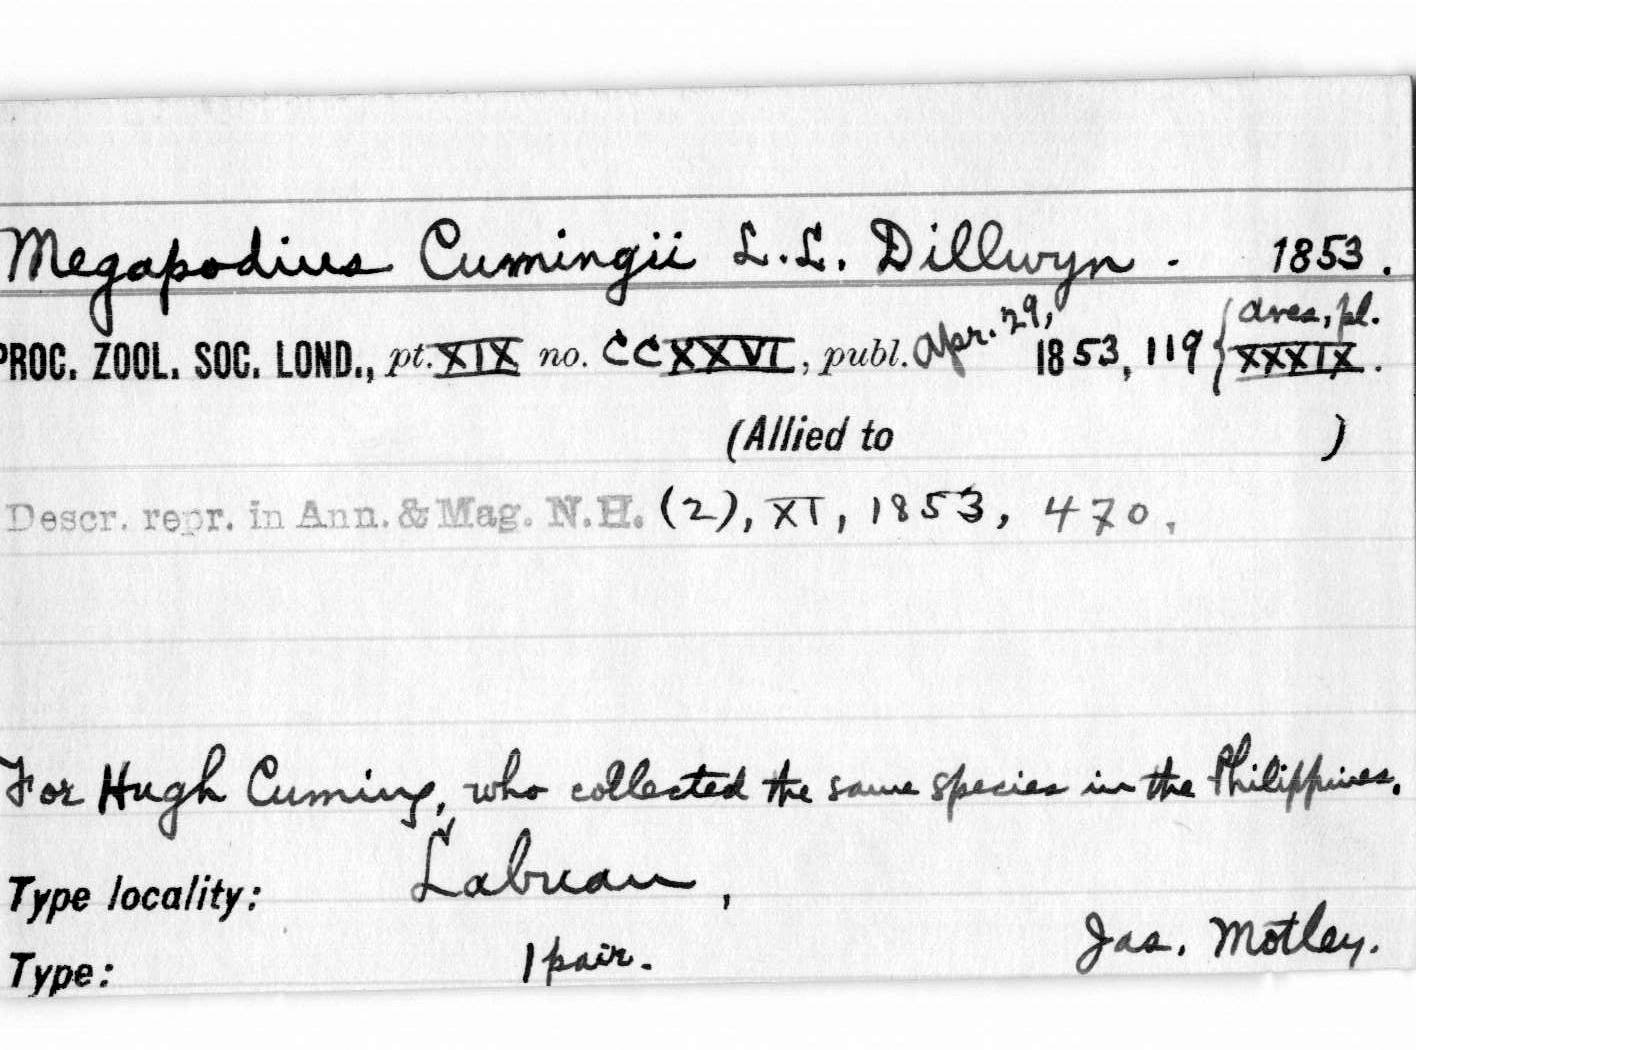 Megapodius Cumingii L.L. Dillwyn. 1853.
PROC. ZOOL. SOC. LOND., pt. XIX no. CCXXVI, publ. Apr. 29, 1853, 119 { Aves, pl. XXXIX.
(Allied to )
Descr. repr. in Ann. & Mag. N.H. (2), XI, 1853, 470.
For Hugh Cuming, who collected the same species in the Philippines.
Type locality: Labuan,
Jas. Motley.
Type: 1 pair.